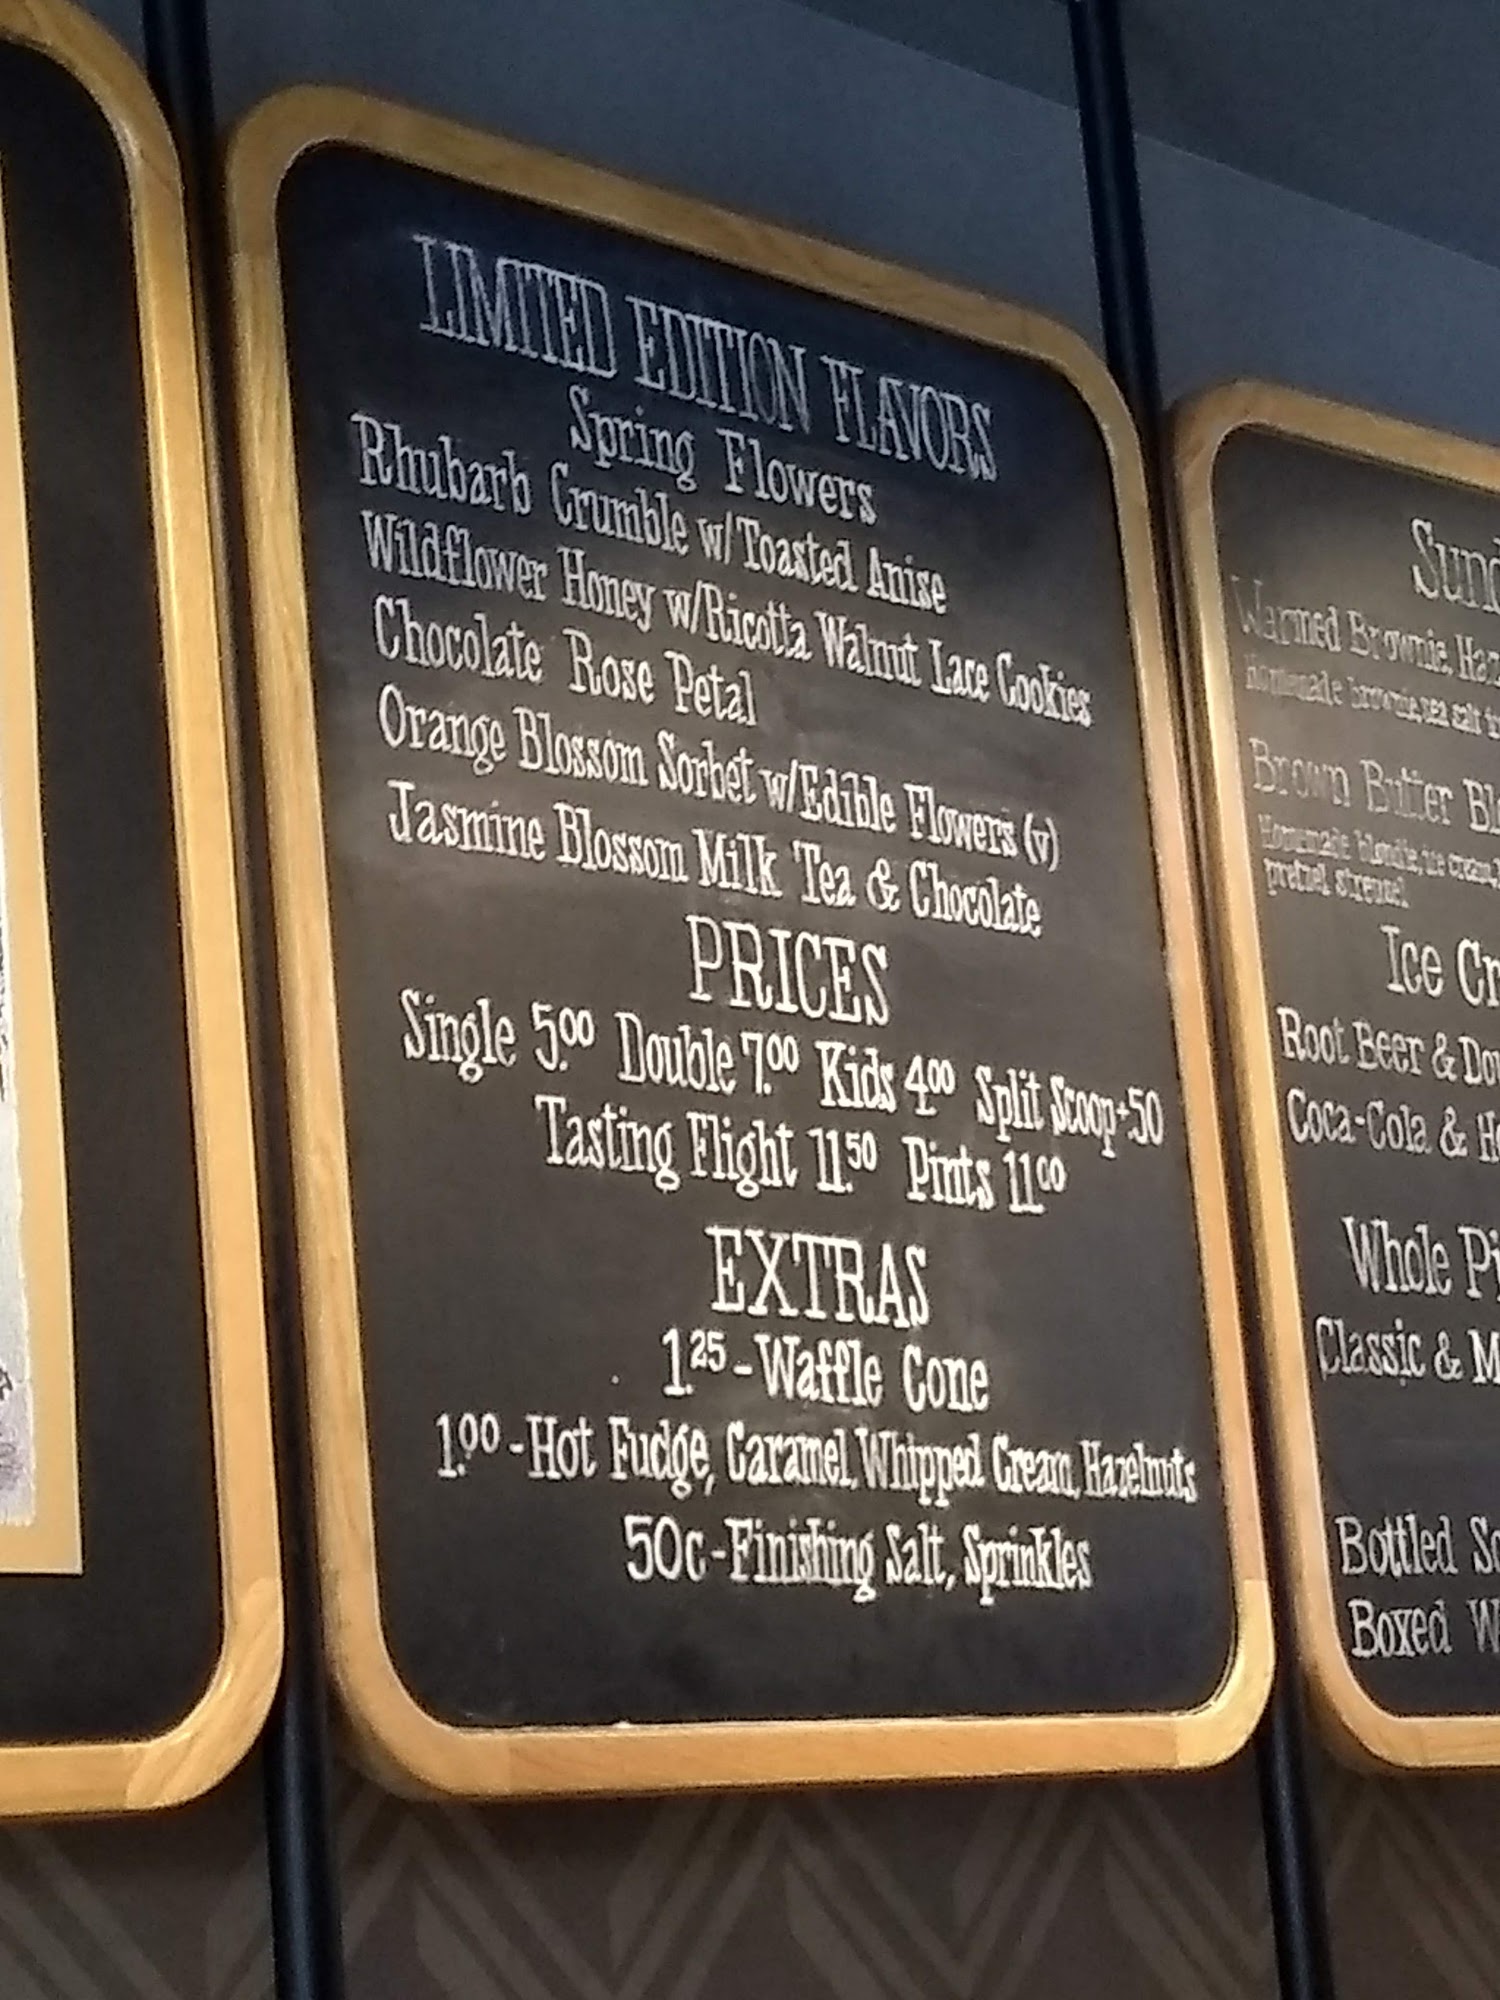 LIMITED EDITION FLAVORS
Spring Flowers
Rhubarb Crumble w/Toasted Anise
Wildflower Honey w/Ricotta Walnut Lace Cookies
Chocolate Rose Petal
Orange Blossom Sorbet w/Edible Flowers (v)
Jasmine Blossom Milk Tea & Chocolate
PRICES
Single 5.00 Double 7.00 Kids 4.00 Split Scoop+.50
Tasting Flight 11.50 Pints 11.00
EXTRAS
1.25-Waffle Cone
1.00-Hot Fudge, Caramel, Whipped Cream, Hazelnuts
50c-Finishing Salt, Sprinkles
Sund
Warmed Brownie, Haz
Homemade brownie, sea salt
Brown Butter Bl
Homemade blondie, ice cream,
pretzel streusel
Ice Cr
Root Beer & Dou
Coca-Cola & Ho
Whole Pi
Classic & M
Bottled So
Boxed W